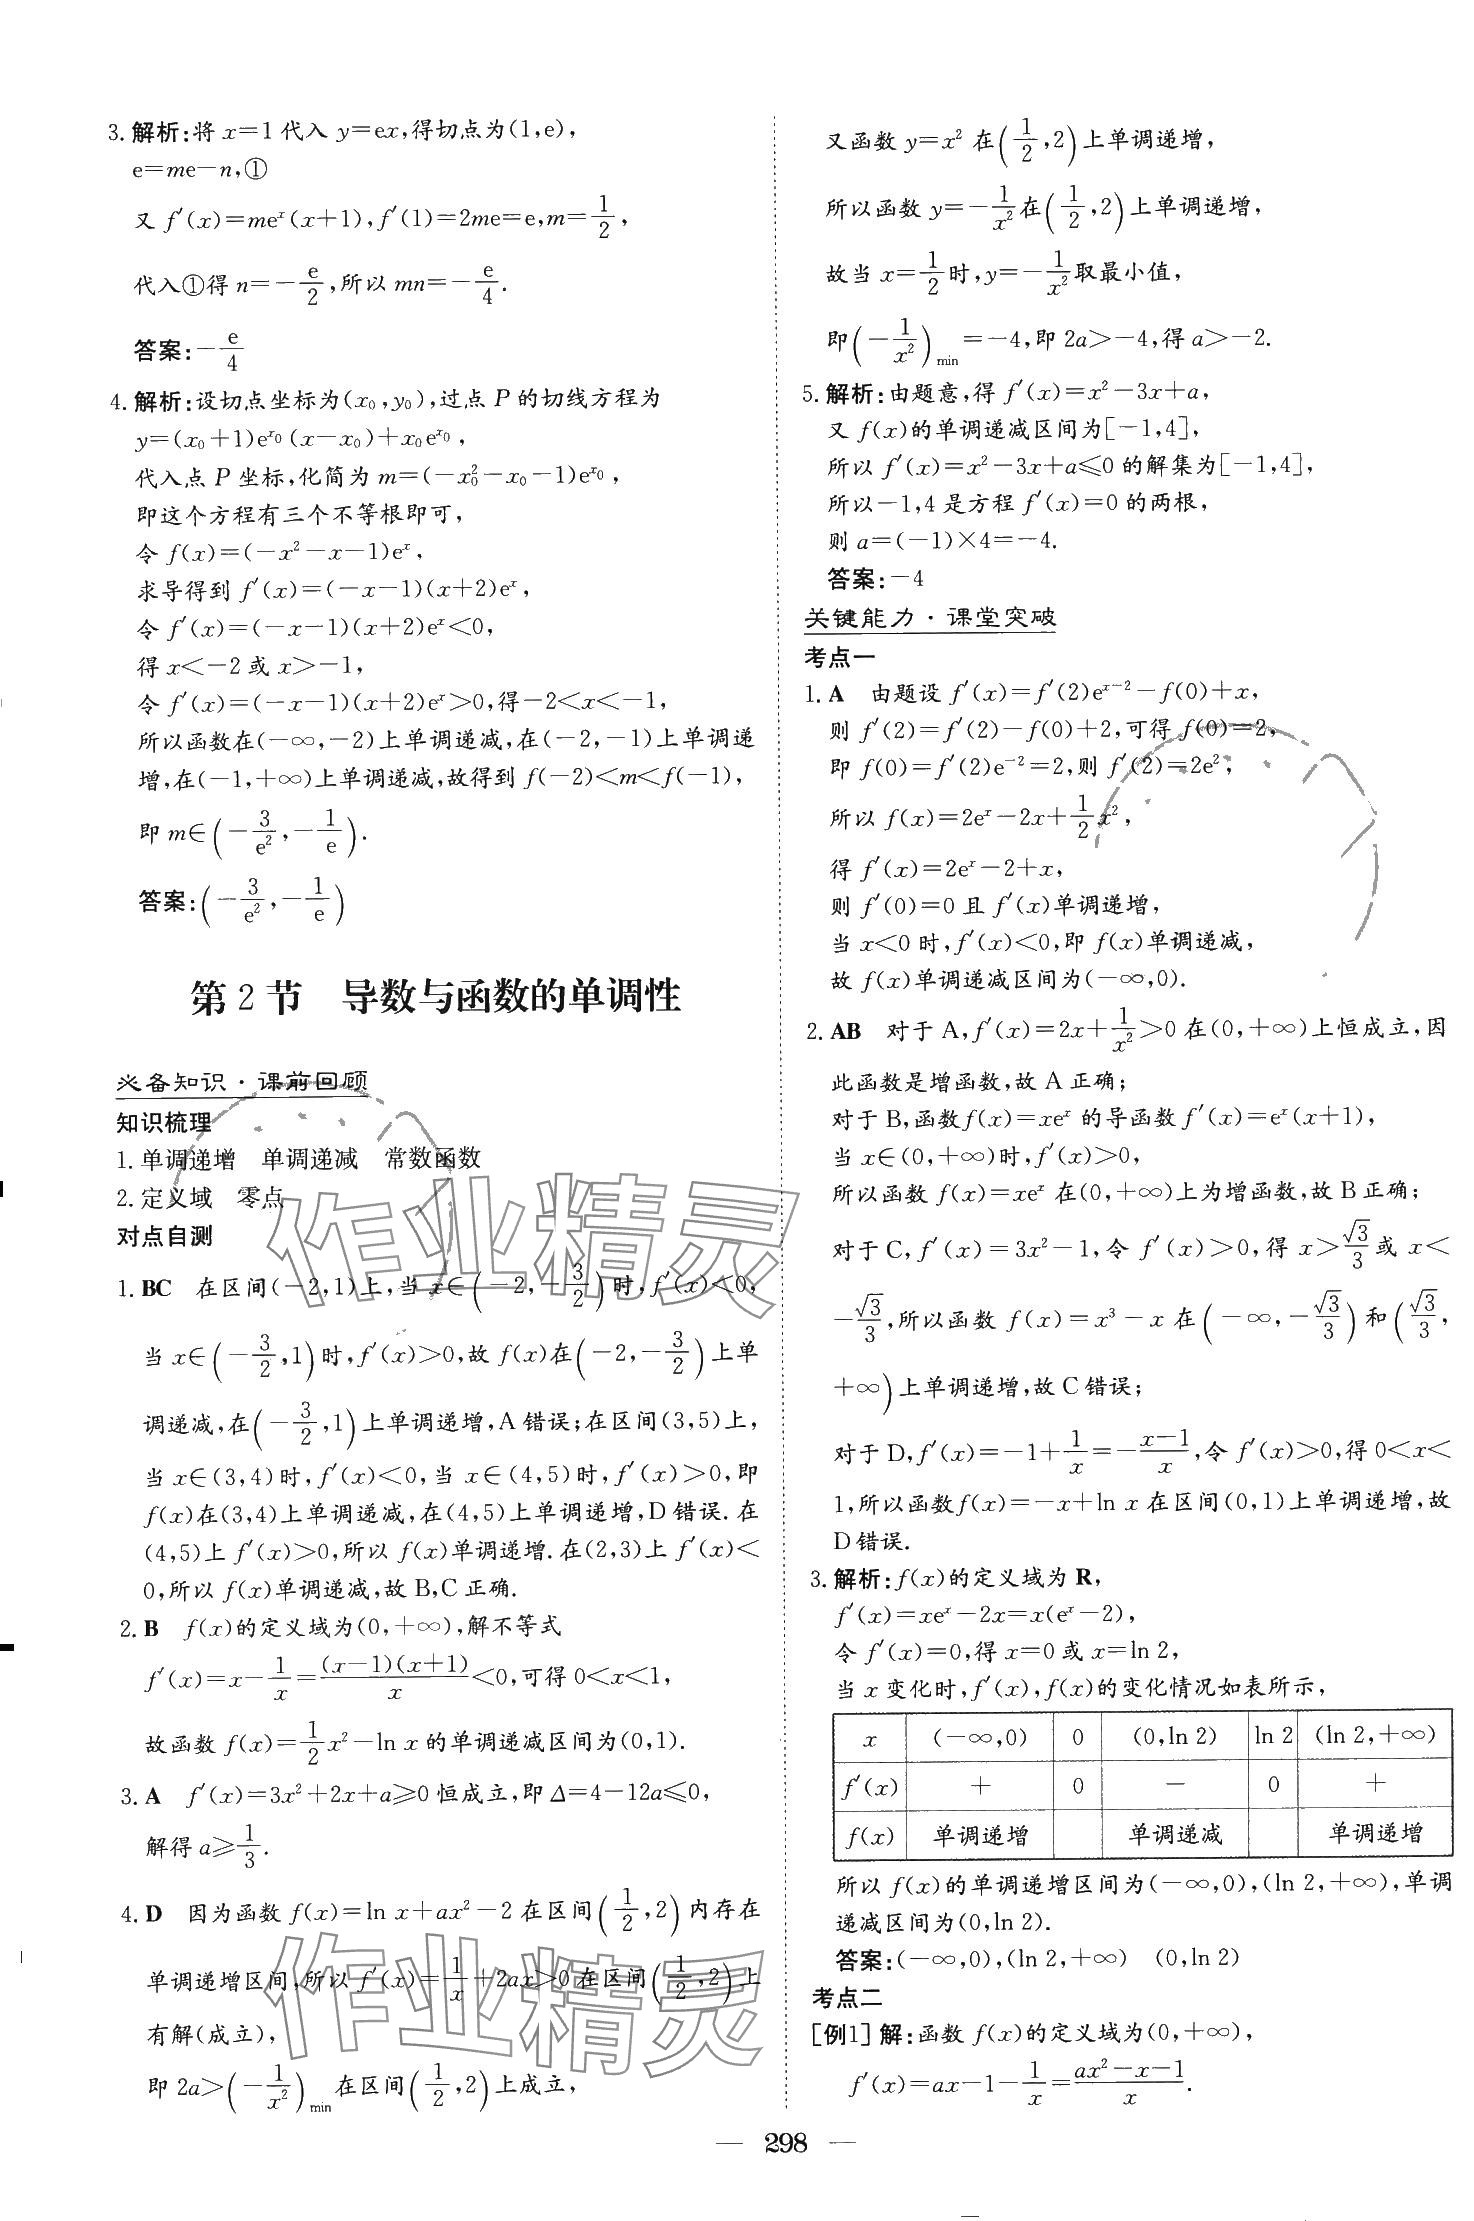 3. 解析:将 x=1 代入 y=ex,得切点为(1,e),
e=me−n,①
又 f′(x)=meˣ(x+1),f′(1)=2me=e,m=1/2,
代入①得 n=−e/2,所以 mn=−e/4.
答案:−e/4
4. 解析:设切点坐标为(x₀,y₀),过点 P 的切线方程为
y=(x₀+1)e^{x₀}(x−x₀)+x₀e^{x₀},
代入点 P 坐标,化简为 m=(−x₀²−x₀−1)e^{x₀},
即这个方程有三个不等根即可,
令 f(x)=(−x²−x−1)eˣ,
求导得到 f′(x)=(−x−1)(x+2)eˣ,
令 f′(x)=(−x−1)(x+2)eˣ<0,
得 x<−2 或 x>−1,
令 f′(x)=(−x−1)(x+2)eˣ>0,得−2<x<−1,
所以函数在(−∞,−2)上单调递减,在(−2,−1)上单调递
增,在(−1,+∞)上单调递减,故得到 f(−2)<m<f(−1),
即 m∈(−3/e²,−1/e).
答案:(−3/e²,−1/e)
第 2 节 导数与函数的单调性
必备知识·课前回顾
知识梳理
1. 单调递增 单调递减 常数函数
2. 定义域 零点
对点自测
1. BC 在区间(−2,1)上,当 x∈(−2,−3/2)时,f′(x)<0,
当 x∈(−3/2,1)时,f′(x)>0,故 f(x)在(−2,−3/2)上单
调递减,在(−3/2,1)上单调递增,A 错误;在区间(3,5)上,
当 x∈(3,4)时,f′(x)<0,当 x∈(4,5)时,f′(x)>0,即
f(x)在(3,4)上单调递减,在(4,5)上单调递增,D 错误.在
(4,5)上 f′(x)>0,所以 f(x)单调递增.在(2,3)上 f′(x)<
0,所以 f(x)单调递减,故 B,C 正确.
2. B f(x)的定义域为(0,+∞),解不等式
f′(x)=x−1/x=(x−1)(x+1)/x<0,可得 0<x<1,
故函数 f(x)=1/2x²−ln x 的单调递减区间为(0,1).
3. A f′(x)=3x²+2x+a≥0 恒成立,即 Δ=4−12a≤0,
解得 a≥1/3.
4. D 因为函数 f(x)=ln x+ax²−2 在区间(1/2,2)内存在
单调递增区间,所以 f′(x)=1/x+2ax>0 在区间(1/2,2)上
有解(成立),
即 2a>(−1/x²)min 在区间(1/2,2)上成立,
又函数 y=x² 在(1/2,2)上单调递增,
所以函数 y=−1/x²在(1/2,2)上单调递增,
故当 x=1/2时,y=−1/x²取最小值,
即(−1/x²)min=−4,即 2a>−4,得 a>−2.
5. 解析:由题意,得 f′(x)=x²−3x+a,
又 f(x)的单调递减区间为[−1,4],
所以 f′(x)=x²−3x+a≤0 的解集为[−1,4],
所以−1,4 是方程 f′(x)=0 的两根,
则 a=(−1)×4=−4.
答案:−4
关键能力·课堂突破
考点一
1. A 由题设 f′(x)=f′(2)e^{x−2}−f(0)+x,
则 f′(2)=f′(2)−f(0)+2,可得 f(0)=2,
即 f(0)=f′(2)e⁻²=2,则 f′(2)=2e²,
所以 f(x)=2eˣ−2x+1/2x²,
得 f′(x)=2eˣ−2+x,
则 f′(0)=0 且 f′(x)单调递增,
当 x<0 时,f′(x)<0,即 f(x)单调递减,
故 f(x)单调递减区间为(−∞,0).
2. AB 对于 A,f′(x)=2x+1/x²>0 在(0,+∞)上恒成立,因
此函数是增函数,故 A 正确;
对于 B,函数f(x)=xeˣ 的导函数 f′(x)=eˣ(x+1),
当 x∈(0,+∞)时,f′(x)>0,
所以函数 f(x)=xeˣ 在(0,+∞)上为增函数,故 B 正确;
对于 C,f′(x)=3x²−1,令 f′(x)>0,得 x>√3/3或 x<
−√3/3,所以函数 f(x)=x³−x 在(−∞,−√3/3)和(√3/3,
+∞)上单调递增,故 C 错误;
对于 D,f′(x)=−1+1/x=−(x−1)/x,令 f′(x)>0,得 0<x<
1,所以函数f(x)=−x+ln x 在区间(0,1)上单调递增,故
D 错误.
3. 解析:f(x)的定义域为 R,
f′(x)=xeˣ−2x=x(eˣ−2),
令 f′(x)=0,得 x=0 或 x=ln 2,
当 x 变化时,f′(x),f(x)的变化情况如表所示,
x (−∞,0) 0 (0,ln 2) ln 2 (ln 2,+∞)
f′(x) + 0 − 0 +
f(x) 单调递增 单调递减 单调递增
所以 f(x)的单调递增区间为(−∞,0),(ln 2,+∞),单调
递减区间为(0,ln 2).
答案:(−∞,0),(ln 2,+∞) (0,ln 2)
考点二
[例1] 解:函数 f(x)的定义域为(0,+∞),
f′(x)=ax−1−1/x=(ax²−x−1)/x.
— 298 —
作业精灵
作业精灵